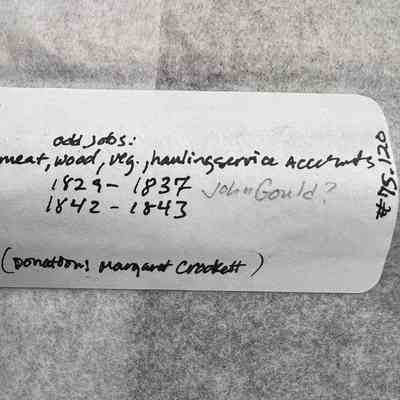 odd jobs:
meat, wood, veg., hauling service Accounts
1829 - 1837 John Gould?
1842 - 1843
(Donations Margaret Crockett)
#75.120